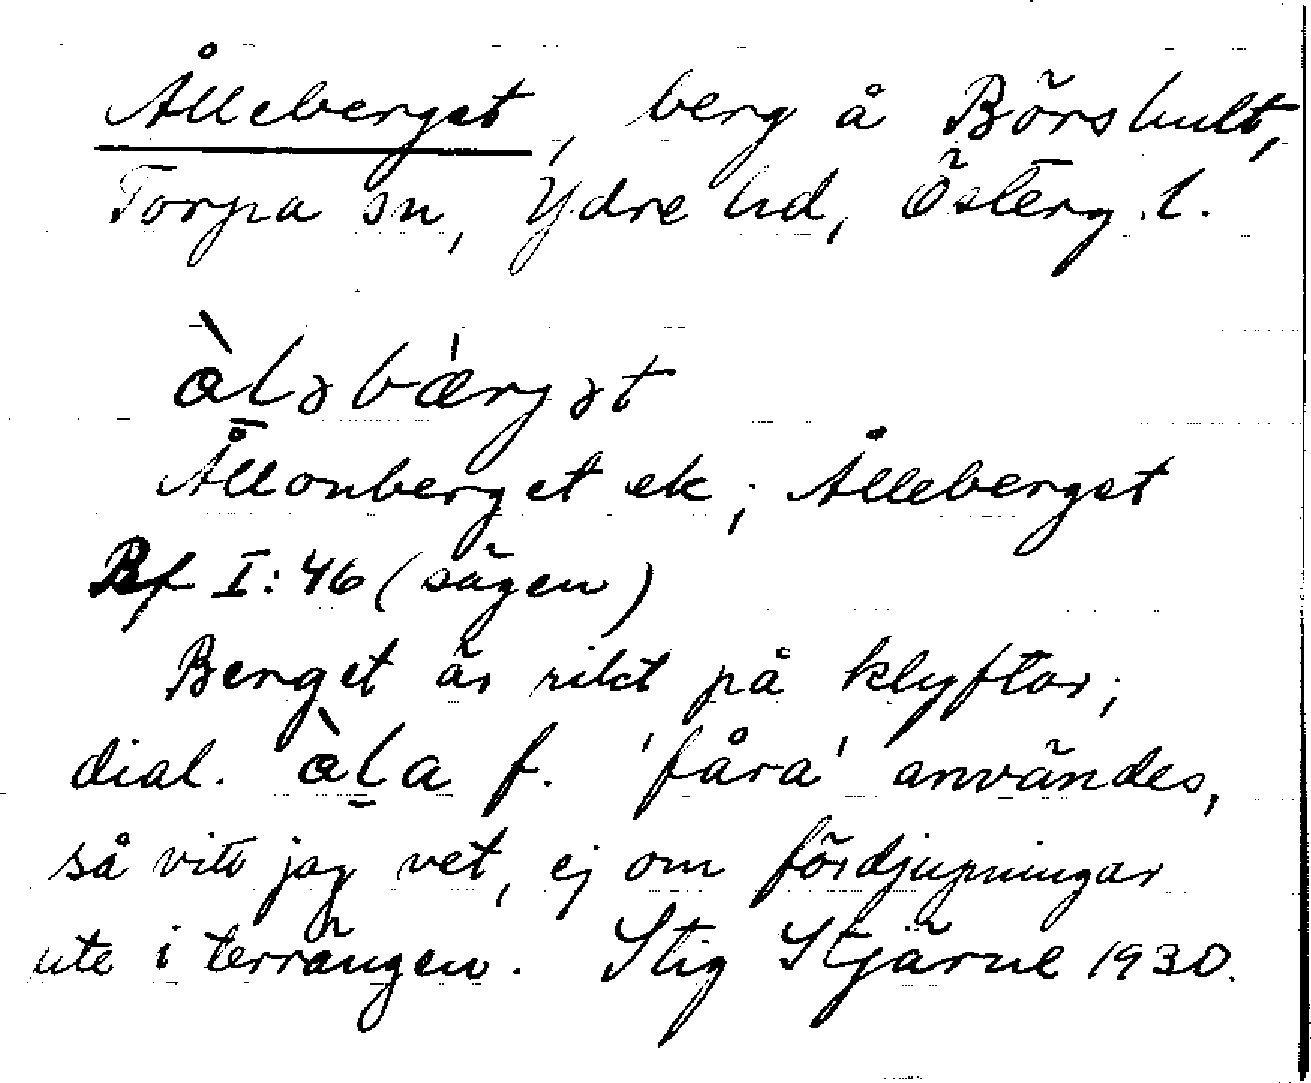 Ålleberget, berg å Börshult,
Torpa sn, Ydre hd, Österg. l.
àl̠əbærgət
Ållonberget ek; Ålleberget
Rf I: 46 (sägen)
Berget är rikt på klyftor;
dial. àl̠a f. 'fåra' användes,
så vitt jag vet, ej om fördjupningar
ute i terrängen. Stig Stjärne 1930.